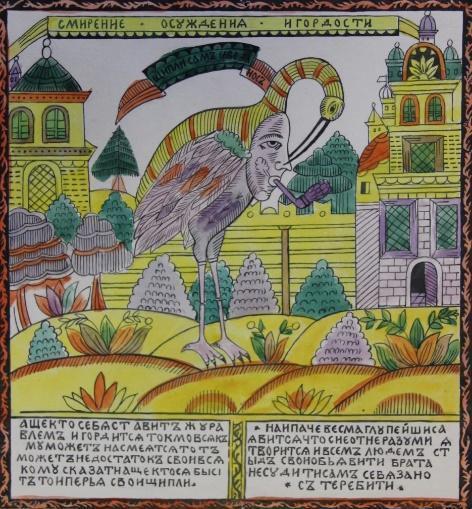 СМИРЕНИЕ · ОСУЖДЕННА · И ГОРДОСТИ
ЩИПЛИ САМЪ
НОСЪ
АЩЕ КТО СЕБЯ СТАВИТ ЖУРА
ВЛЕМЪ И ГОРДИТСЯ ТОКМО ВСЯКЪ
МУ МОЖЕТЪ НАСМЕЯТСЯ ТОТЪ
МОЖЕТ В НЕДОСТАТОКЪ СВОИ ВСЯ
КОМУ СКАЗАТ НАЩЕКТОСЯ БЫСИ
ТЪ ТО И ПЕРЬЯ СВОИ ЩИПЛИ.
• НАИПАЧЕ ВЕСМА ГЛУПЕЙШИ СЯ
ЯВИТСЯ ЧТО СИЕ ОТ НЕРАЗУМИ Я
ТВОРИТСЯ И ВСЕМЪ ЛЮДЕМЪ СТ
ЫДЪ СВОЙ ОБЬЯВИТИ БРАТА
НЕ СУДИТИ САМЪ СЕБЯ ЗАНО
• СЪ ТЕРЕБИТИ •